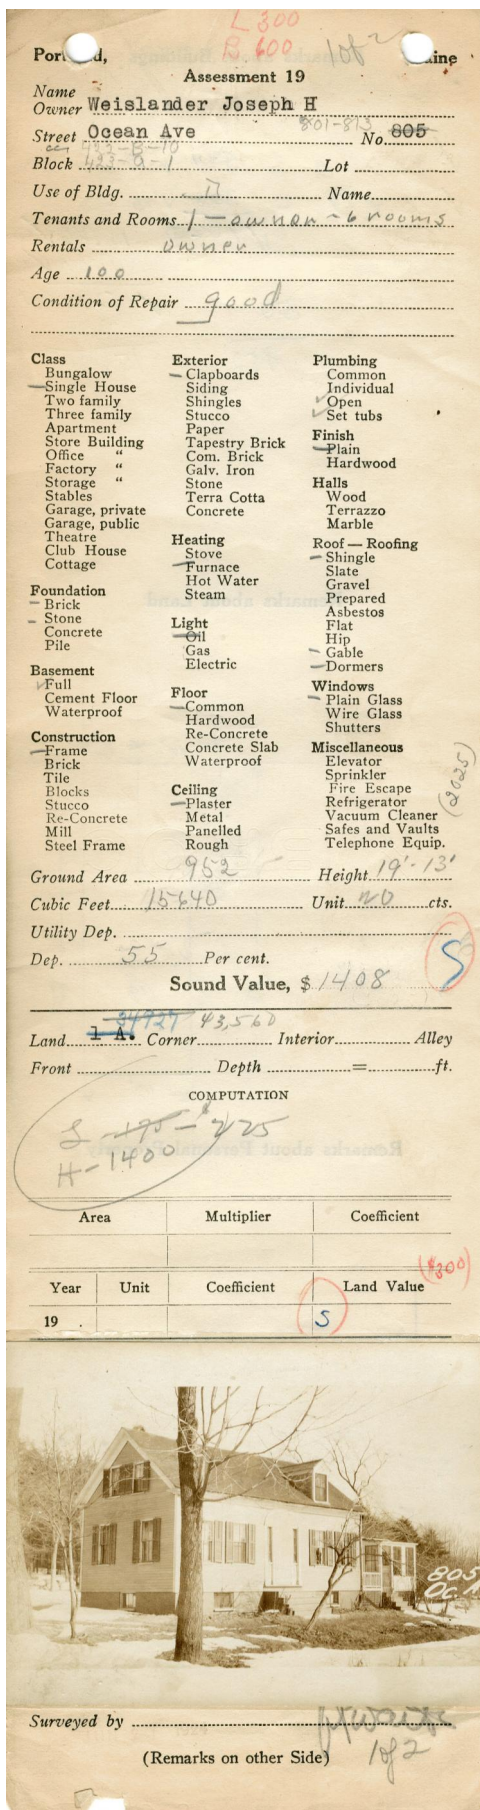 L 300
B 600
1 of 2
Portland, Maine
Assessment 19
Name
Owner Weislander Joseph H
801-813
Street Ocean Ave No. 805
433-B-10
Block 423-A-1 Lot
Use of Bldg. D Name
Tenants and Rooms 1 - owner - 6 rooms
Rentals owner
Age 100
Condition of Repair good
Class
Bungalow
Single House
Two family
Three family
Apartment
Store Building
Office "
Factory "
Storage "
Stables
Garage, private
Garage, public
Theatre
Club House
Cottage
Foundation
Brick
Stone
Concrete
Pile
Basement
Full
Cement Floor
Waterproof
Construction
Frame
Brick
Tile
Blocks
Stucco
Re-Concrete
Mill
Steel Frame
Exterior
Clapboards
Siding
Shingles
Stucco
Paper
Tapestry Brick
Com. Brick
Galv. Iron
Stone
Terra Cotta
Concrete
Heating
Stove
Furnace
Hot Water
Steam
Light
Oil
Gas
Electric
Floor
Common
Hardwood
Re-Concrete
Concrete Slab
Waterproof
Ceiling
Plaster
Metal
Panelled
Rough
Plumbing
Common
Individual
Open
Set tubs
Finish
Plain
Hardwood
Halls
Wood
Terrazzo
Marble
Roof — Roofing
Shingle
Slate
Gravel
Prepared
Asbestos
Flat
Hip
Gable
Dormers
Windows
Plain Glass
Wire Glass
Shutters
Miscellaneous
Elevator
Sprinkler
Fire Escape
Refrigerator
Vacuum Cleaner
Safes and Vaults
Telephone Equip.
(2025)
Ground Area 952 Height 19'-13'
Cubic Feet 15640 Unit 20 cts.
Utility Dep.
Dep. 55 Per cent.
S
Sound Value, $ 1408
34927 43,560
Land 1 A. Corner Interior Alley
Front Depth = ft.
COMPUTATION
L - 175 - 225
H - 1400
Area Multiplier Coefficient
($300)
Year Unit Coefficient Land Value
19 S
805
Oc. A
Surveyed by
(Remarks on other Side)
1 of 2